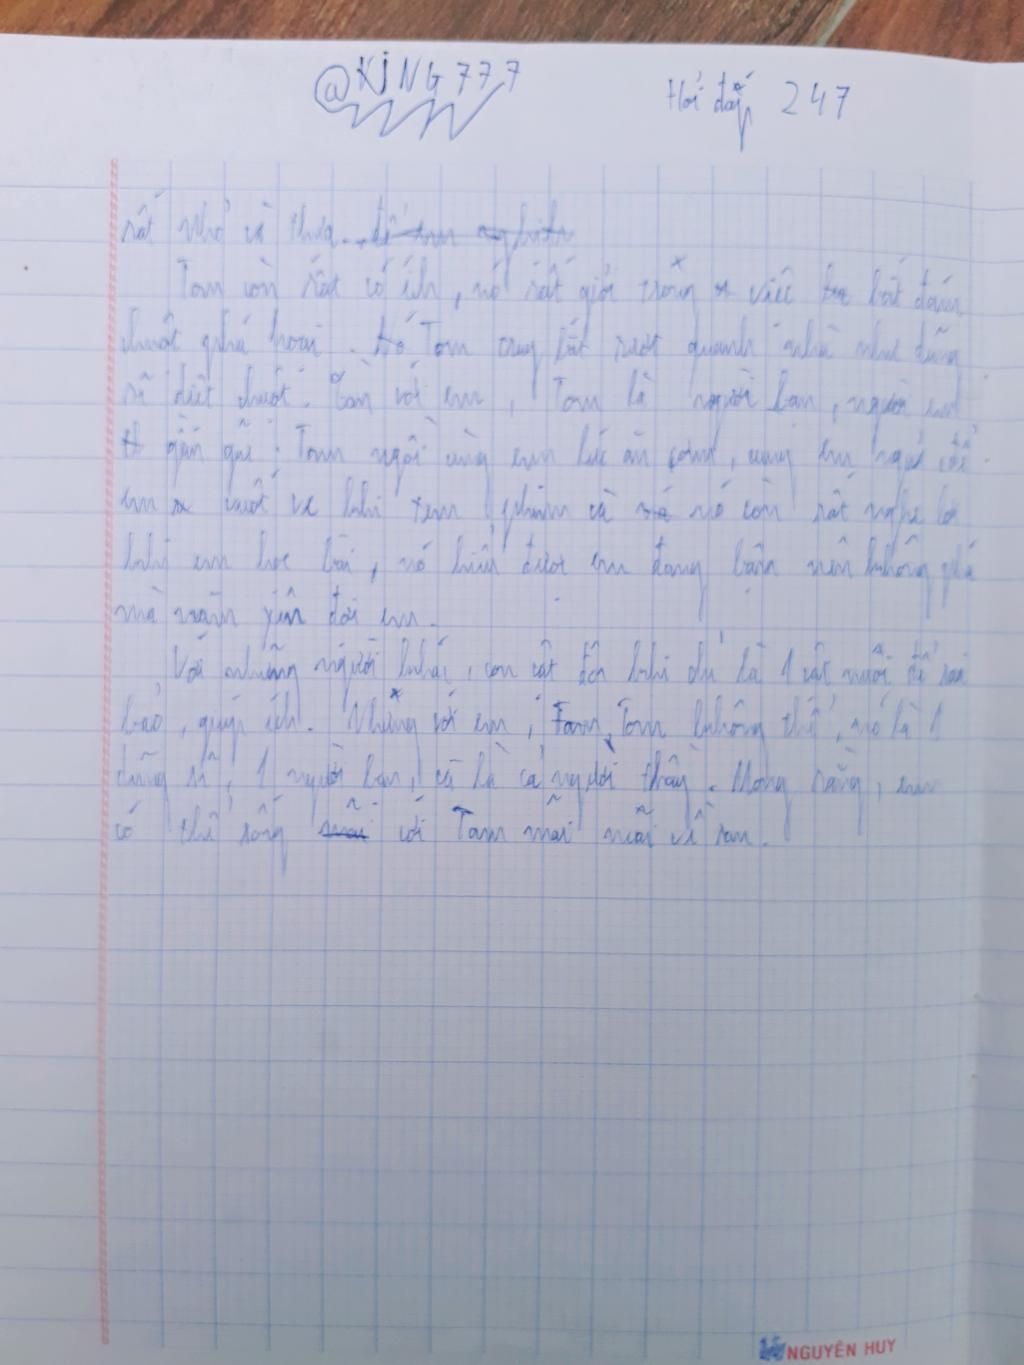 @KING777 Hỏi đáp 247
rất nhỏ và thưa.
Tom còn rất có ích, nó rất giỏi trong việc bắt đám
chuột phá hoại. Tom quanh nhà như dũng
sĩ diệt chuột. với em, Tom là người bạn, người em
gần gũi. Tom ngồi cùng em lúc ăn cơm, cùng em ngủ, để
em vuốt ve khi xem phim và nó còn rất nghe lời
khi em học bài, nó hiểu được em đang bận nên không phá
mà nằm yên đợi em.
Với những người khác, con vật đôi khi chỉ là 1 vật nuôi để sai
bảo, giúp ích. Nhưng với em, Tom không thế, nó là 1
dũng sĩ, 1 người bạn, và là cả người thầy. Mong rằng, em
có thể sống với Tom mãi mãi về sau.
NGUYÊN HUY